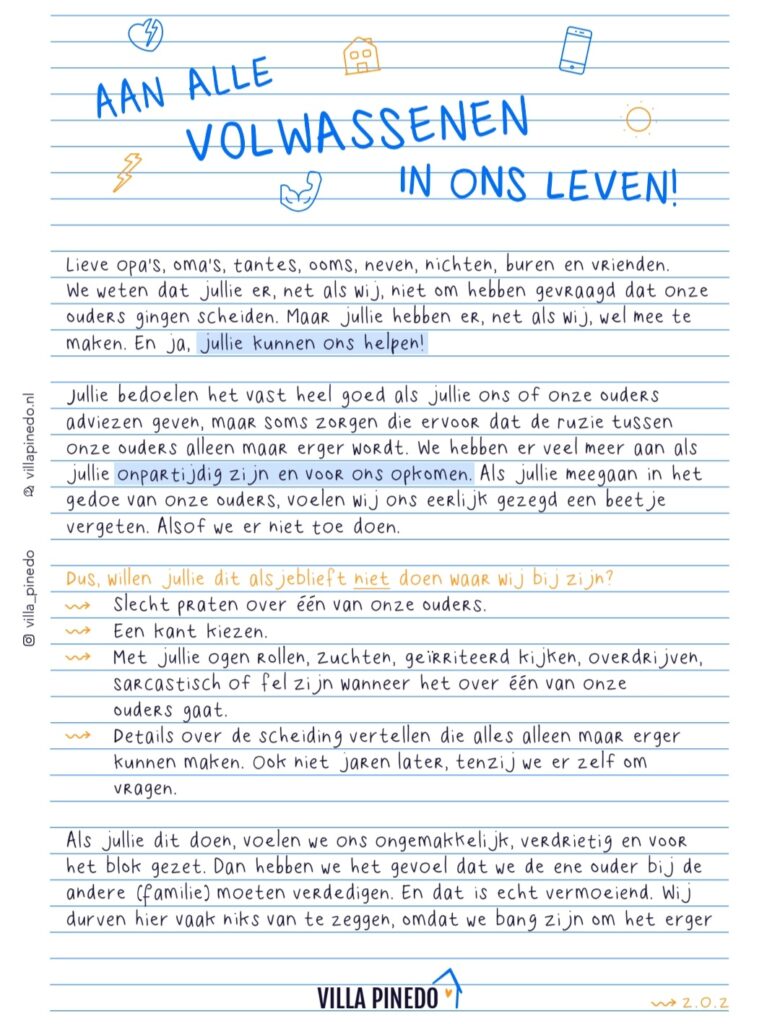 AAN ALLE
VOLWASSENEN
IN ONS LEVEN!
Lieve opa's, oma's, tantes, ooms, neven, nichten, buren en vrienden.
We weten dat jullie er, net als wij, niet om hebben gevraagd dat onze
ouders gingen scheiden. Maar jullie hebben er, net als wij, wel mee te
maken. En ja, jullie kunnen ons helpen!
Jullie bedoelen het vast heel goed als jullie ons of onze ouders
adviezen geven, maar soms zorgen die ervoor dat de ruzie tussen
onze ouders alleen maar erger wordt. We hebben er veel meer aan als
jullie onpartijdig zijn en voor ons opkomen. Als jullie meegaan in het
gedoe van onze ouders, voelen wij ons eerlijk gezegd een beetje
vergeten. Alsof we er niet toe doen.
Dus, willen jullie dit alsjeblieft niet doen waar wij bij zijn?
Slecht praten over één van onze ouders.
Een kant kiezen.
Met jullie ogen rollen, zuchten, geïrriteerd kijken, overdrijven,
sarcastisch of fel zijn wanneer het over één van onze
ouders gaat.
Details over de scheiding vertellen die alles alleen maar erger
kunnen maken. Ook niet jaren later, tenzij we er zelf om
vragen.
Als jullie dit doen, voelen we ons ongemakkelijk, verdrietig en voor
het blok gezet. Dan hebben we het gevoel dat we de ene ouder bij de
andere (familie) moeten verdedigen. En dat is echt vermoeiend. Wij
durven hier vaak niks van te zeggen, omdat we bang zijn om het erger
villapinedo.nl
villa_pinedo
VILLA PINEDO
z.o.z